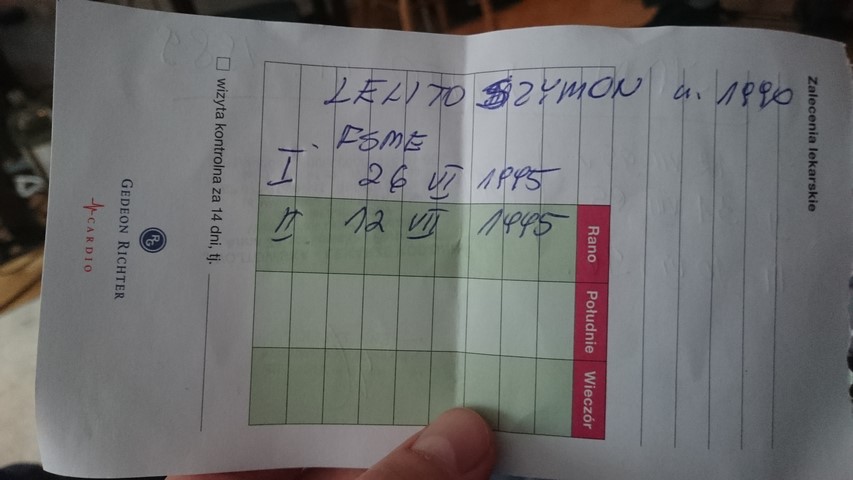 LELITO SZYMON u. 1990
FSME
I 26 VI 1995
II 12 VII 1995
Zalecenia lekarskie
Rano
Południe
Wieczór
wizyta kontrolna za 14 dni, tj.
GEDEON RICHTER
CARDIO